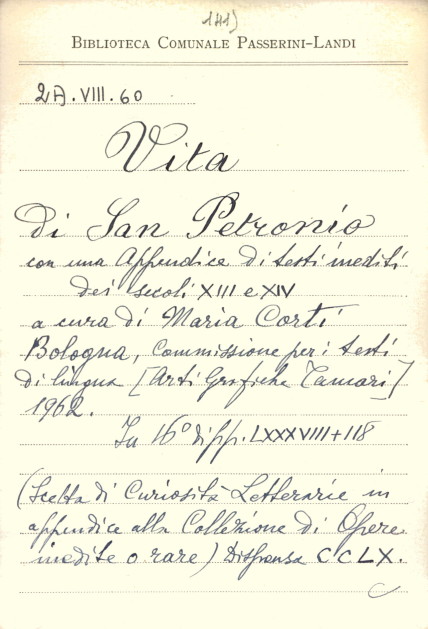 141)
BIBLIOTECA COMUNALE PASSERINI-LANDI
2A.VIII.60
Vita
di San Petronio
con una Appendice di testi inediti
dei secoli XIII e XIV
a cura di Maria Corti
Bologna, Commissione per i testi
di lingua [Arti Grafiche Tamari]
1962.
In 16° di pp. LXXXVIII+118
(Scelta di Curiosità Letterarie in
appendice alla Collezione di Opere
inedite o rare) Dispensa CCLX.